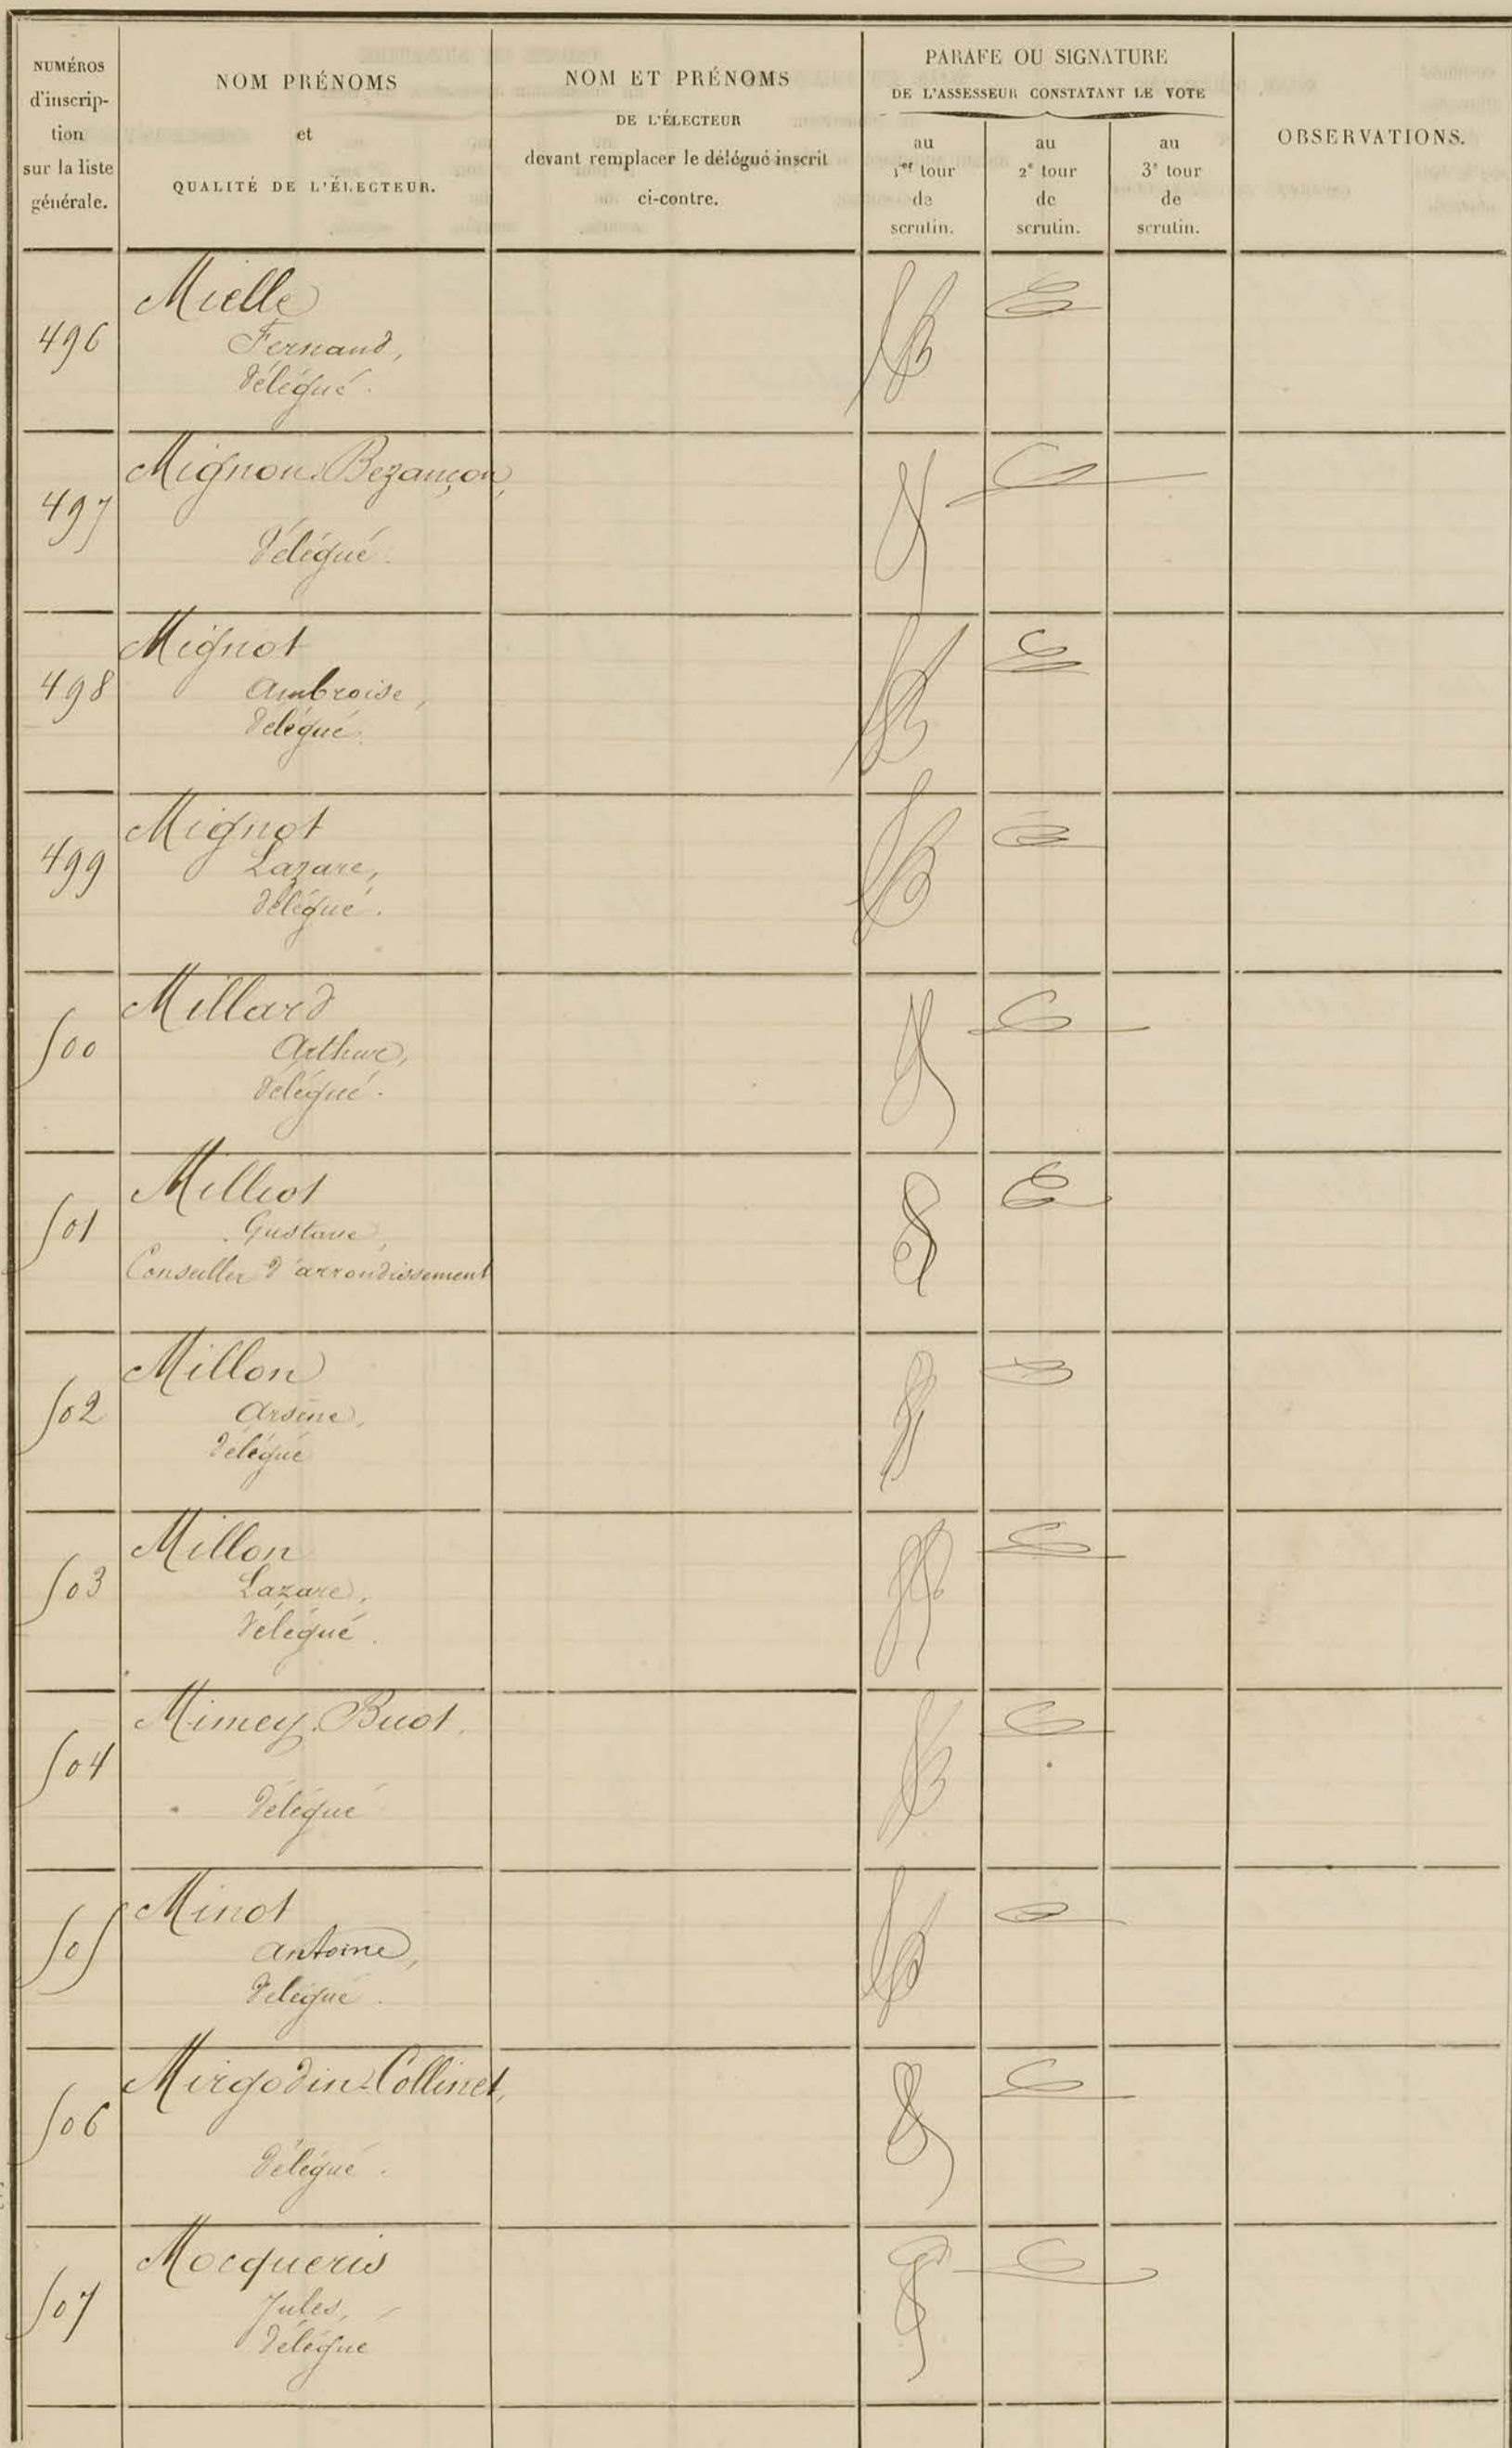 NUMÉROS
d'inscrip-
tion
sur la liste
générale.
NOM PRÉNOMS
et
QUALITÉ DE L'ÉLECTEUR.
NOM ET PRÉNOMS
DE L'ÉLECTEUR
devant remplacer le délégué inscrit
ci-contre.
PARAFE OU SIGNATURE
DE L'ASSESSEUR CONSTATANT LE VOTE
au
1er tour
de
scrutin.
au
2e tour
de
scrutin.
au
3e tour
de
scrutin.
OBSERVATIONS.
496
Mielle
Fernand,
Délégué.
497
Mignon-Bezançon,
Délégué.
498
Mignot
Ambroise,
Délégué.
499
Mignot
Lazare,
Délégué.
500
Millard
Arthur,
Délégué.
501
Milliot
Gustave,
Conseiller d'arrondissement
502
Millon
Arsène,
Délégué
503
Millon
Lazare,
Délégué.
504
Mimey-Buot.
Délégué
505
Minot
Antoine,
Délégué.
506
Mirgodin-Collinet,
Délégué.
507
Mocqueris
Jules,
Délégué